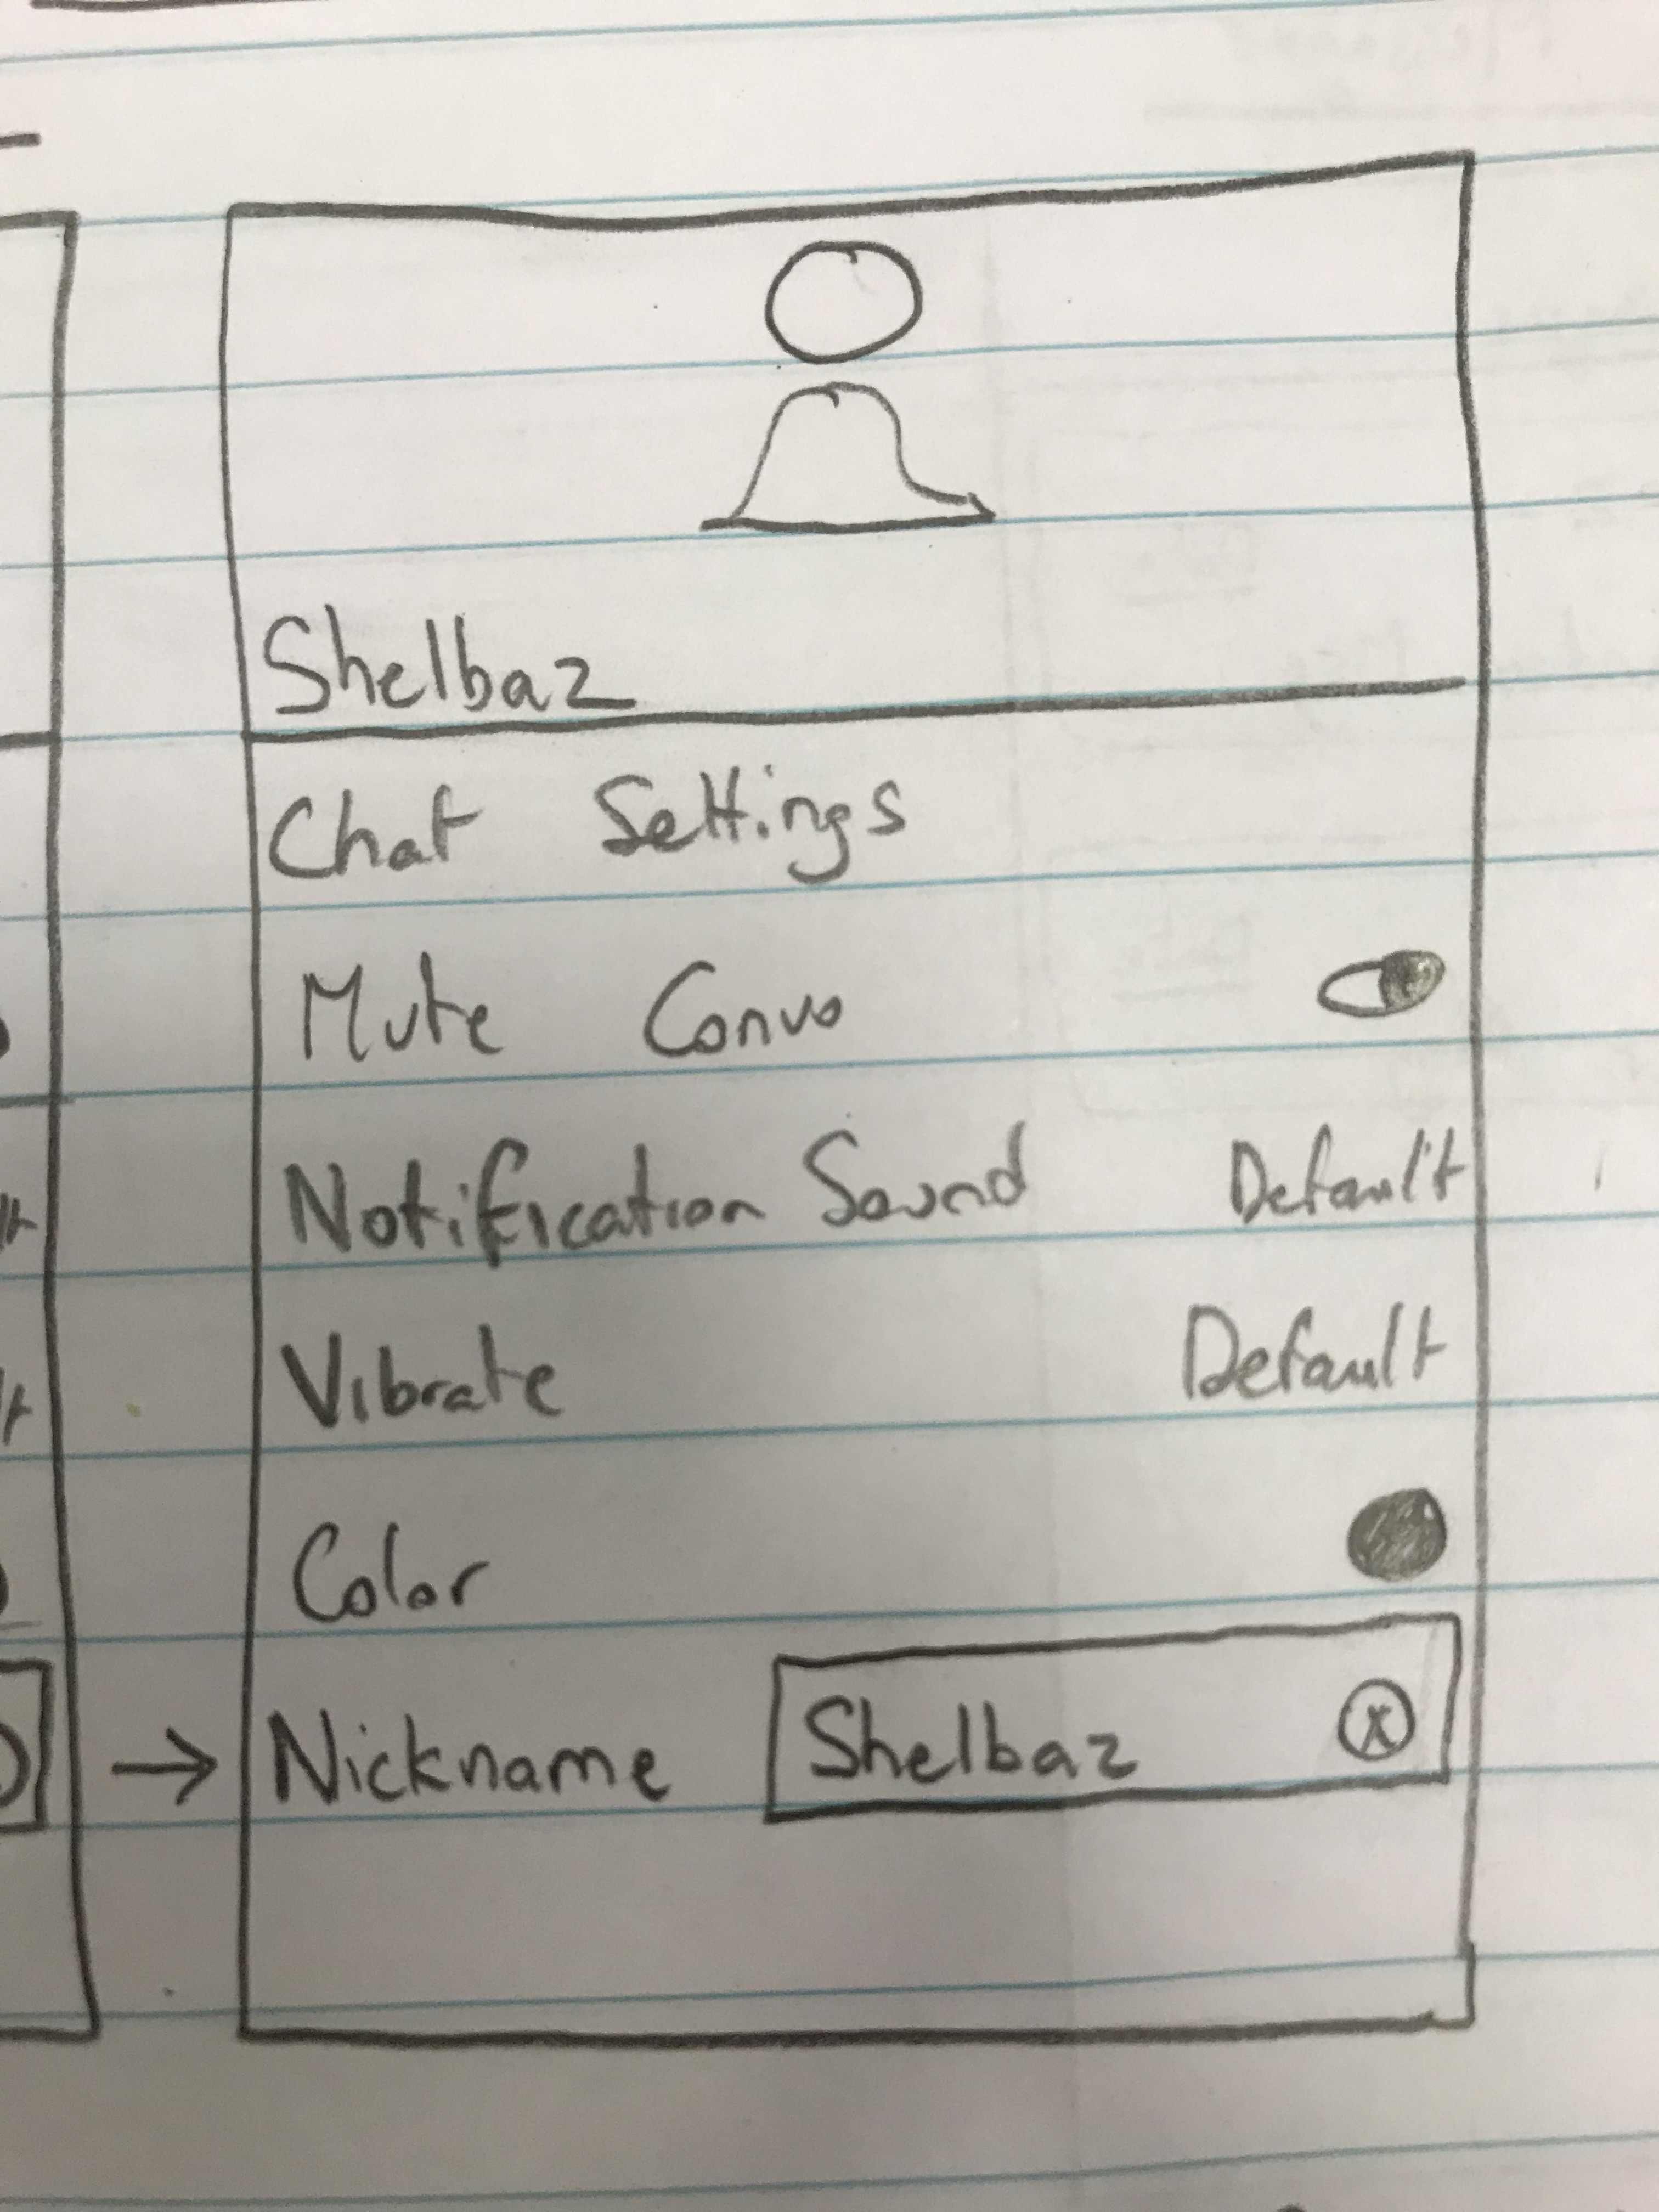 Shelbaz
Chat Settings
Mute Convo
Notification Sound Default
Vibrate Default
Color
Nickname Shelbaz X